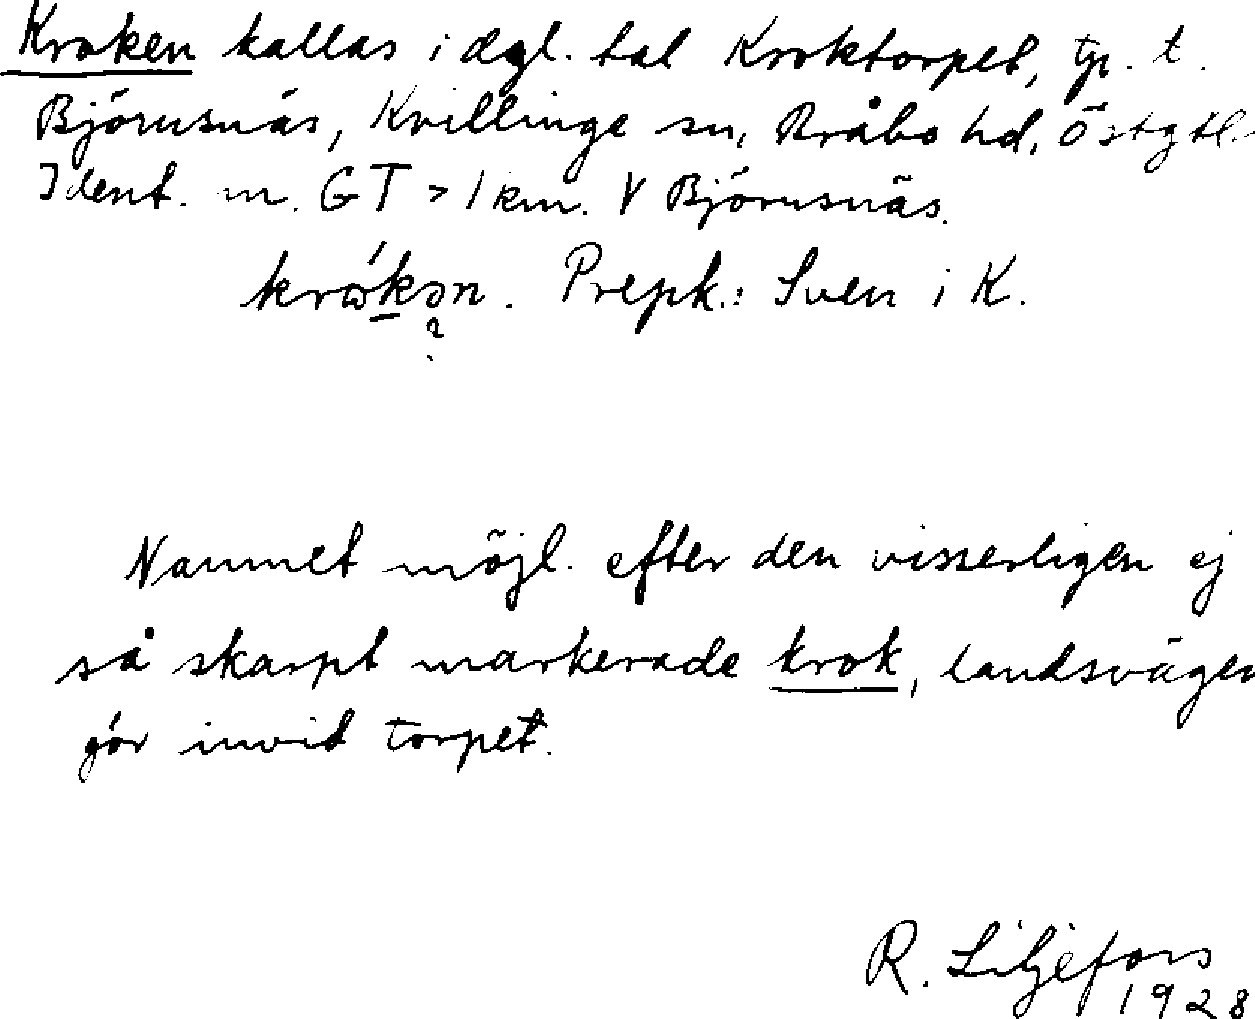 Kroken kallas i dgl. tal Kroktorpet, tp. t.
Björnsnäs, Kvillinge sn, Bråbo hd, Östgtl.
Ident. m. GT > 1 km. V Björnsnäs.
krɷ́kən. Prepk.: Sven i K.
?
Namnet möjl. efter den visserligen ej
så skarpt markerade krok, landsvägen
gör invid torpet.
R. Liljefors
1928